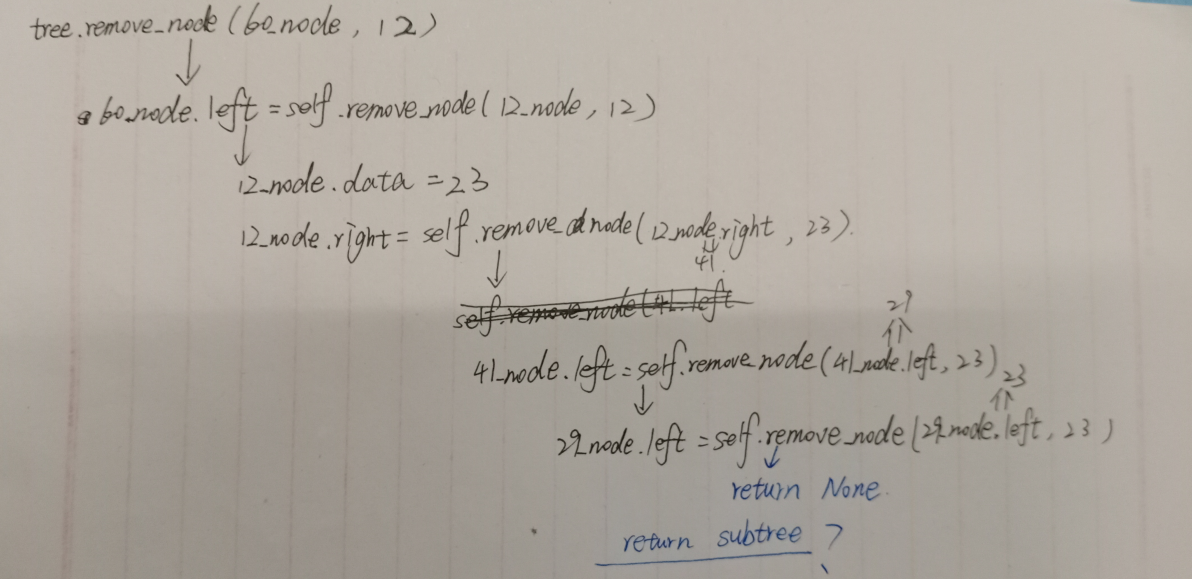 tree.remove_node(60_node, 12)
60_node.left = self.remove_node(12_node, 12)
12_node.data = 23
12_node.right = self.remove_node(12_node.right, 23).
41.
self.remove_node(41.left
29
41_node.left = self.remove_node(41_node.left, 23)
23
29_node.left = self.remove_node(29_node.left, 23)
return None.
return subtree ?